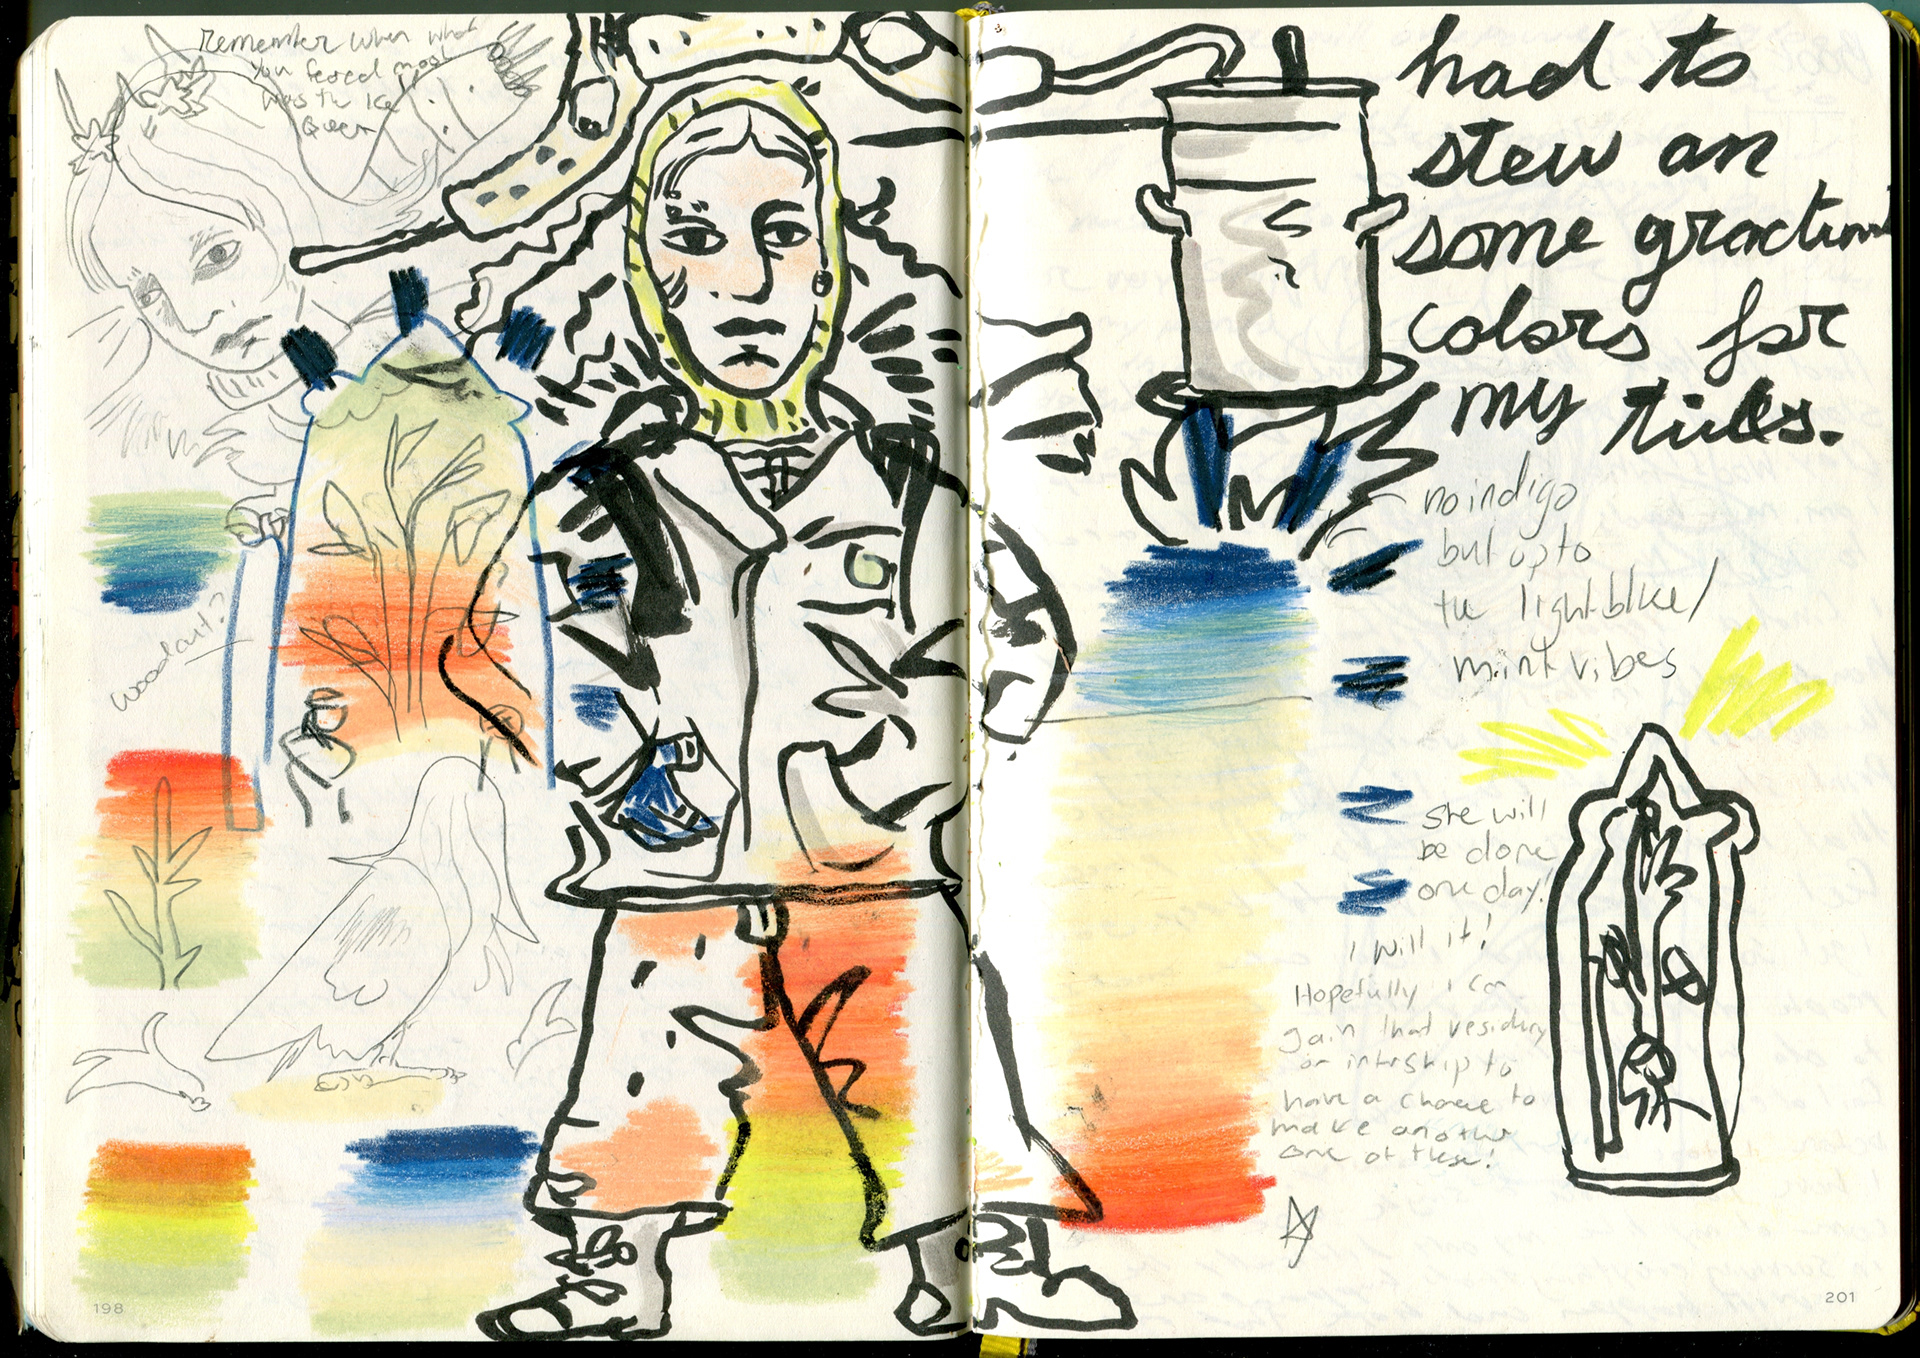 remember when what
you feared most
was the Ice
Queen
had to
stew an
some gradient
colors for
my tiles.
no indigo
but up to
the light blue/
mint vibes
woodcut?
she will
be done
one day!
I will it!
Hopefully I can
gain that residency
or intership to
have a chance to
make another
one of these!
198
201